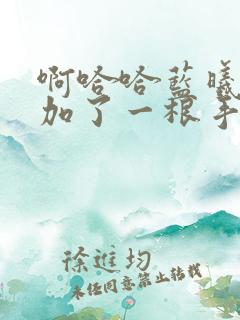 啊哈哈蓝曦
加了一根手
徐進均
未经同意禁止转载